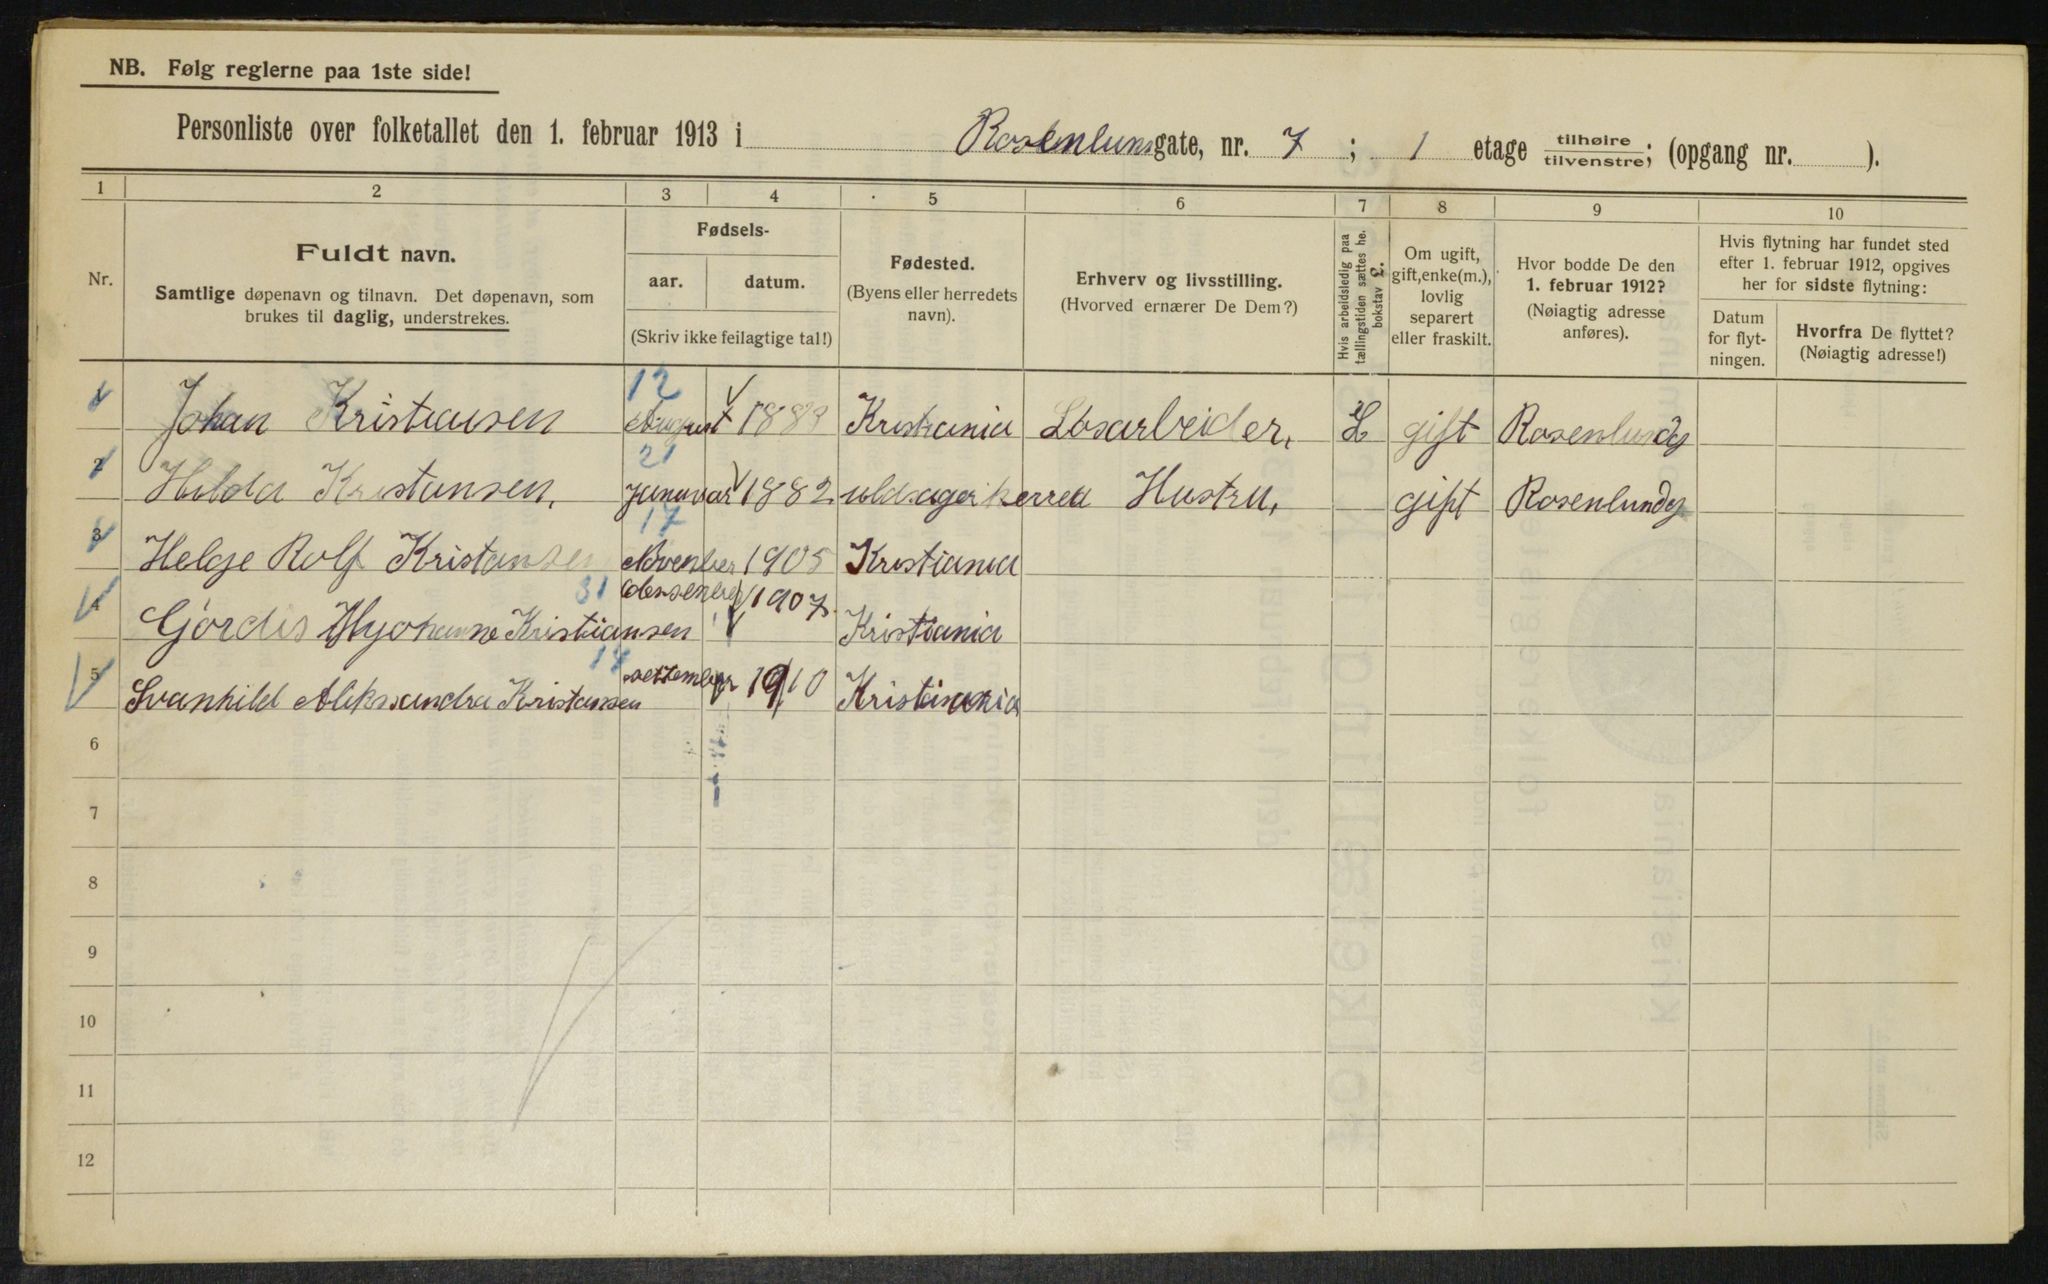 NB. Følg reglerne paa 1ste side!
Personliste over folketallet den 1. februar 1913 i Rosenlunsgate, nr. 7 ; 1 etage tilhøire/tilvenstre; (opgang nr. ).
1 2 3 4 5 6 7 8 9 10
Nr.
Fuldt navn.
Samtlige døpenavn og tilnavn. Det døpenavn, som
brukes til daglig, understrekes.
Fødsels-
aar. datum.
(Skriv ikke feilagtige tal!)
Fødested.
(Byens eller herredets
navn).
Erhverv og livsstilling.
(Hvorved ernærer De Dem?)
Hvis arbeidsledig paa
tællingstiden sættes he.
bokstav L.
Om ugift,
gift, enke(m.),
lovlig
separert
eller fraskilt.
Hvor bodde De den
1. februar 1912?
(Nøiagtig adresse
anføres).
Hvis flytning har fundet sted
efter 1. februar 1912, opgives
her for sidste flytning:
Datum
for flyt-
ningen.
Hvorfra De flyttet?
(Nøiagtig adresse!)
12
1 Johan Kristiansen August 1888 Kristiania Løsarbeider, L gift Rosenlundg
21
2 Hilda Kristansen, Januar 1882 Hustru, gift Rosenlundg
17
3 Helge Rolf Kristansen November 1905 Kristiania
31 1907
4 Gördis Kristiansen Kristiania
14
5 Svanhild Aleksandra Kristansen settember 1910 Kristiania
6
7
8
9
10
11
12